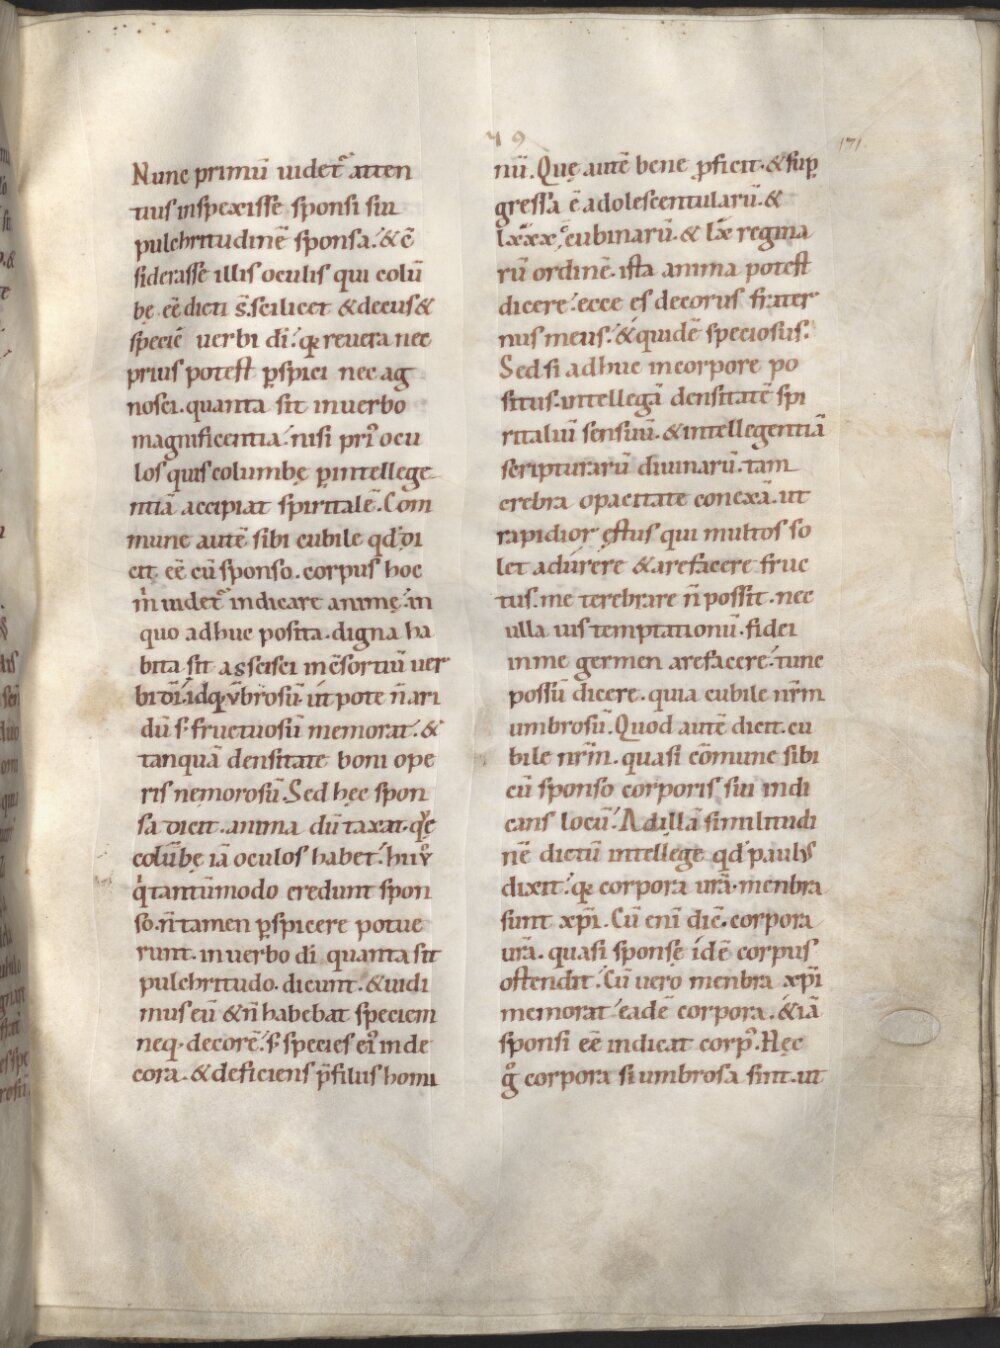 49
171
Nunc primū uidet᷑ atten
tius inspexisse sponsi sui
pulchritudinē sponsa. &c̄
siderasse illis oculis qui colū
bę eē dicti s̄. scilicet & decus &
speciē uerbi dī. qꝛ reuera nec
prius potest ꝑspici nec ag
nosci. quanta sit in uerbo
magnificentia. nisi pri᷒ ocu
los quis columbę ꝑ intellege
ntiā accipiat spiritalē. Com
mune autē sibi cubile qd̓ di
cit eē cū sponso. corpus hoc
m̓ uidet᷑ indicare animę. in
quo adhuc posita. digna ha
bita sit ascisci in c̄sortiū uer
bi dī. idq; v̄brosū. ut pote n̄ ari
dū s; fructuosū memorat. &
tanquā densitate boni ope
ris nemorosū. Sed hęc spon
sa dicit. anima dū taxat. quę
colūbę iā oculos habet. hi uͦ
q̓ tantūmodo credunt spon
so. n̄ tamen ꝑspicere potue
runt. in uerbo dī quanta sit
pulchritudo. dicunt. & uidi
mus eū & n̄ habebat speciem
neq; decorē. s; species ei᷒ inde
cora. & deficiens p̄ filiis homi
nū. Quę autē bene ꝓficit. & suꝑ
gressa ē adolescentularū. &
lxxx. c̄cubinarū. & lx regina
rū ordinē. ista anima potest
dicere. ecce es decorus frater
nus meus. & quidē speciosus.
Sed si adhuc in corpore po
situs. intellegā densitatē spi
ritaliū sensuū. & intellegentiā
scripturarū diuinarū. tam
crebra opacitate conexā. ut
rapidior ęstus qui multos so
let adurere & arefacere fruc
tus. me terebrare n̄ possit. nec
ulla uis temptationū. fidei
in me germen arefacere. tunc
possū dicere. quia cubile nr̄m
umbrosū. Quod autē dicit. cu
bile nr̄m. quasi cōmune sibi
cū sponso corporis sui indi
cans locū. Ad illā similitudi
nē dictū intellege qd̓ paulus
dixit. qꝛ corpora urā. menbra
sunt xp̄i. Cū enī dic̄. corpora
urā. quasi sponsę idē corpus
ostendit. Cū uero menbra xp̄i
memorat. eadē corpora. & iā
sponsi eē indicat corp᷒. Hęc
gͦ corpora si umbrosa sint. ut